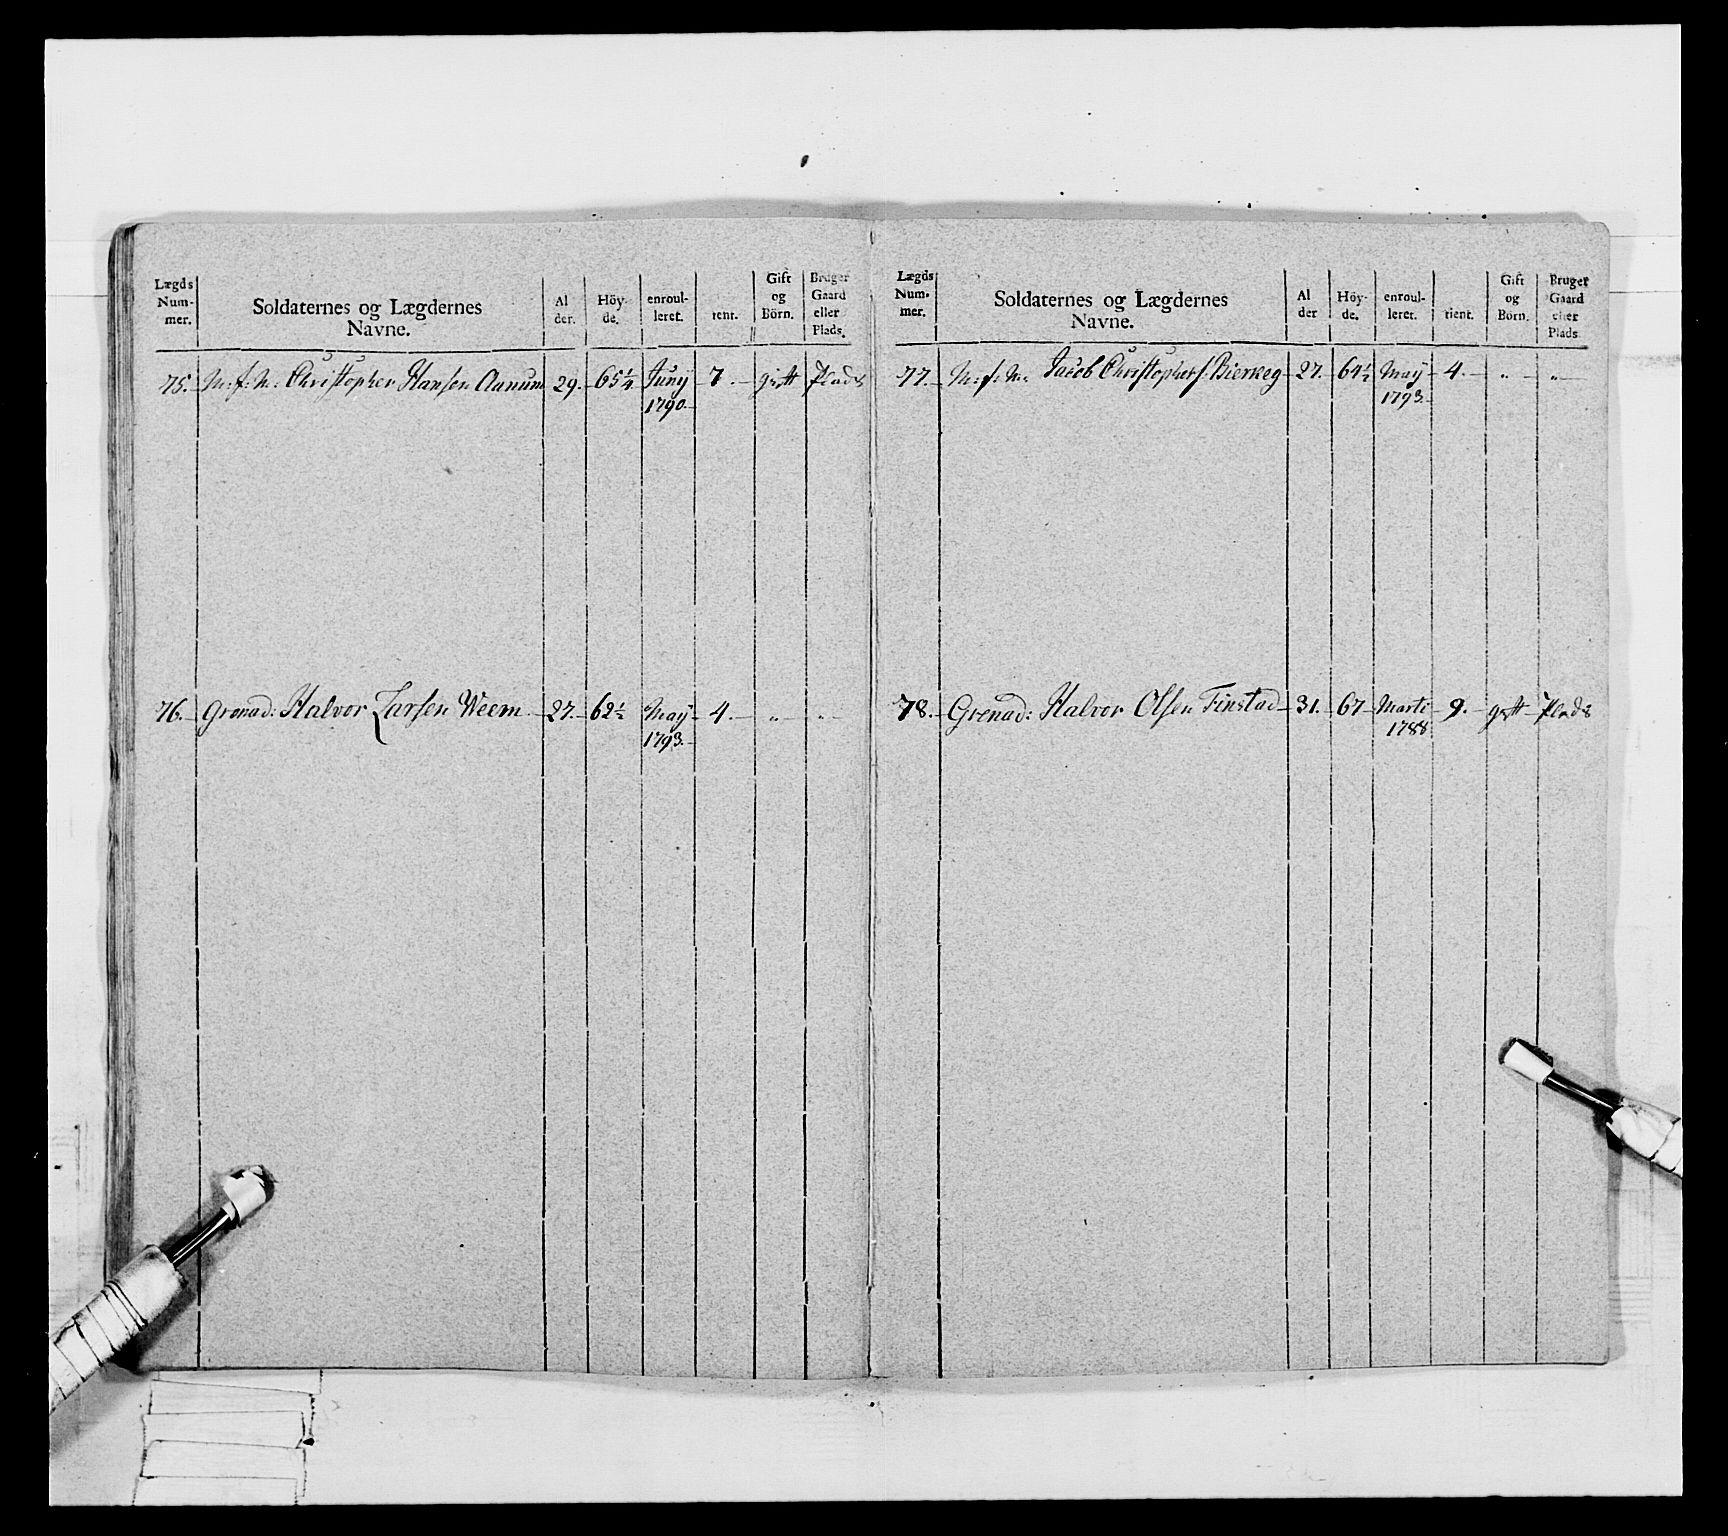 Lægds Num- mer. Soldaternes og Lægdernes Navne. Al der. Höy- de. enroul- leret. tient. Gift og Börn. Bruger Gaard eller Plads.
75. N: f: N: Christopher Hansen Aanum 29. 65 1/4 Juny 7. gift Plads
1790.
76. Grenad: Halvor Larsen Weem 27. 62 1/2 May 4. " "
1793.
Lægds Num- mer. Soldaternes og Lægdernes Navne. Al der Höy- de. enroul- leret. tient. Gift og Börn. Bruger Gaard eller Plads
77. N: f: N: Jacob Christophers: Bierkeg 27. 64 1/2 May 4. " "
1793.
78. Grenad: Halvor Olsen Finstad 31. 67 Marti 9. gift Plads
1788